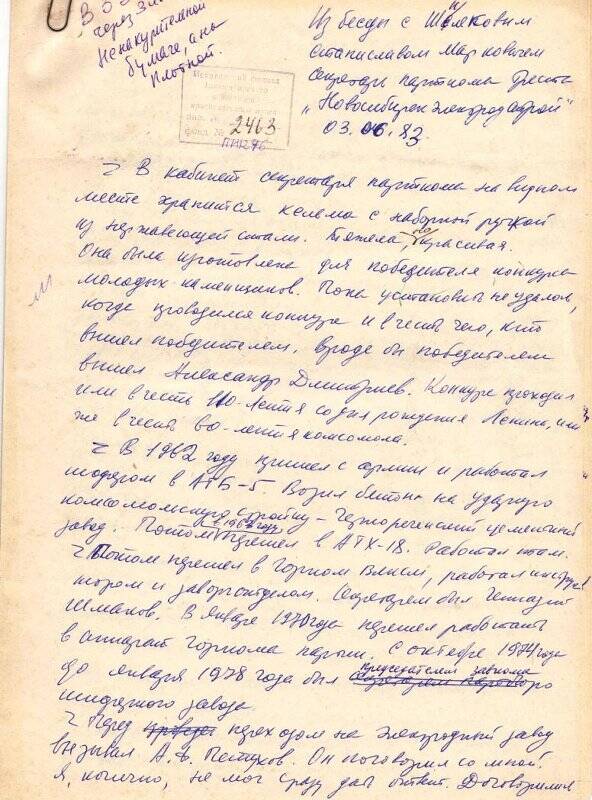 через
Ненакурительной
бумаге, а на
плотной.
2463
Из беседы с
Станиславом Марковичем
секретарь парткома треста
"Новосибирскэлектродстрой"
03.06.83
В кабинет секретаря парткома на видном
месте хранится кельма с наборной ручкой
из нержавеющей стали. Тяжела, но красивая.
Она была изготовлена для победителя конкурса
молодых каменщиков. Пока установить не удалось,
когда проводился конкурс и в честь чего, кто
вышел победителем. Вроде бы победителем
вышел Александр Дмитриев. Конкурс проходил
или в честь 110-летия со дня рождения Ленина, или
же в честь 60-летия комсомола.
В 1962 году пришел с армии и работал
шофером в АТБ-5. Возил бетон на ударную
комсомольскую стройку - Чернореченский цементный
завод. Потом в 1967 году перешел в АТХ-18. Работал там.
Потом перешел в Горком ВЛКСМ, работал инструк-
тором и заворготделом. Секретарем был Геннадий
Шмаков. В январе 1970 года перешел работать
в аппарат горкома партии. С октября 1974 года
до января 1978 года был председателем завкома
шиферного завода.
Перед переходом на Электродный завод
вызывал А.Ф. Петухов. Он поговорил со мной.
Я, конечно, не мог сразу дать ответ. Договорились